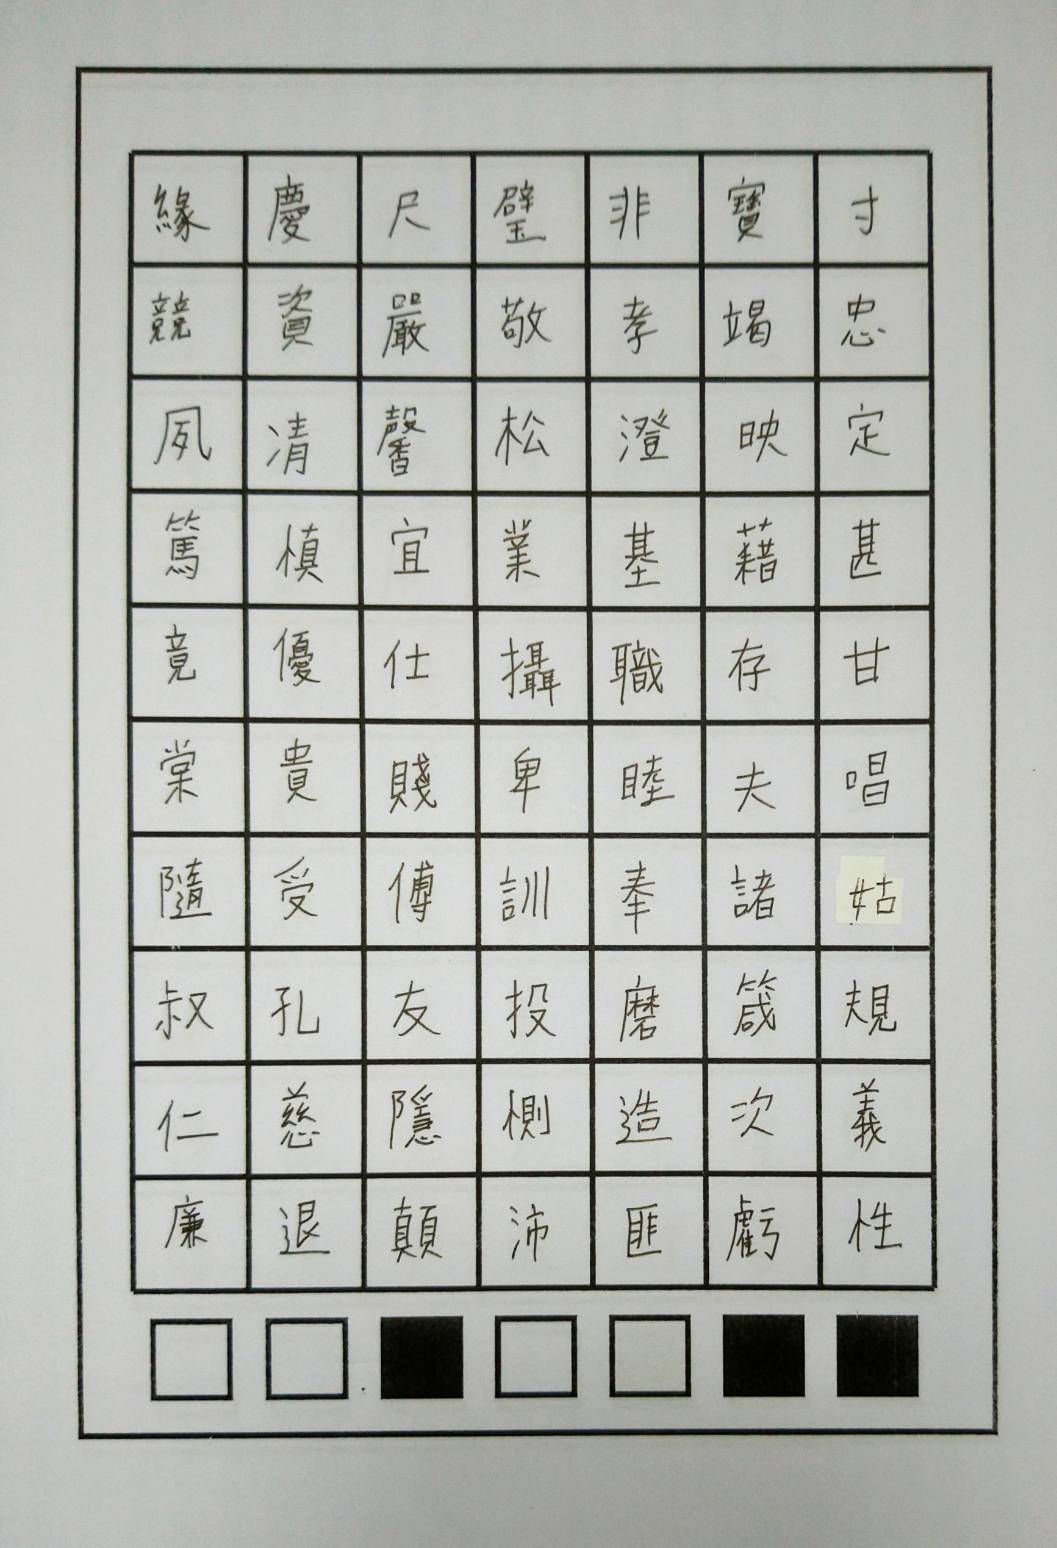 緣慶尺璧非寶寸
競資嚴敬孝竭忠
夙凊馨松澄映定
篤慎宜業基藉甚
竟優仕攝職存甘
棠貴賤卑睦夫唱
隨受傅訓奉諸姑
叔孔友投磨箴規
仁慈隱惻造次義
廉退顛沛匪虧性